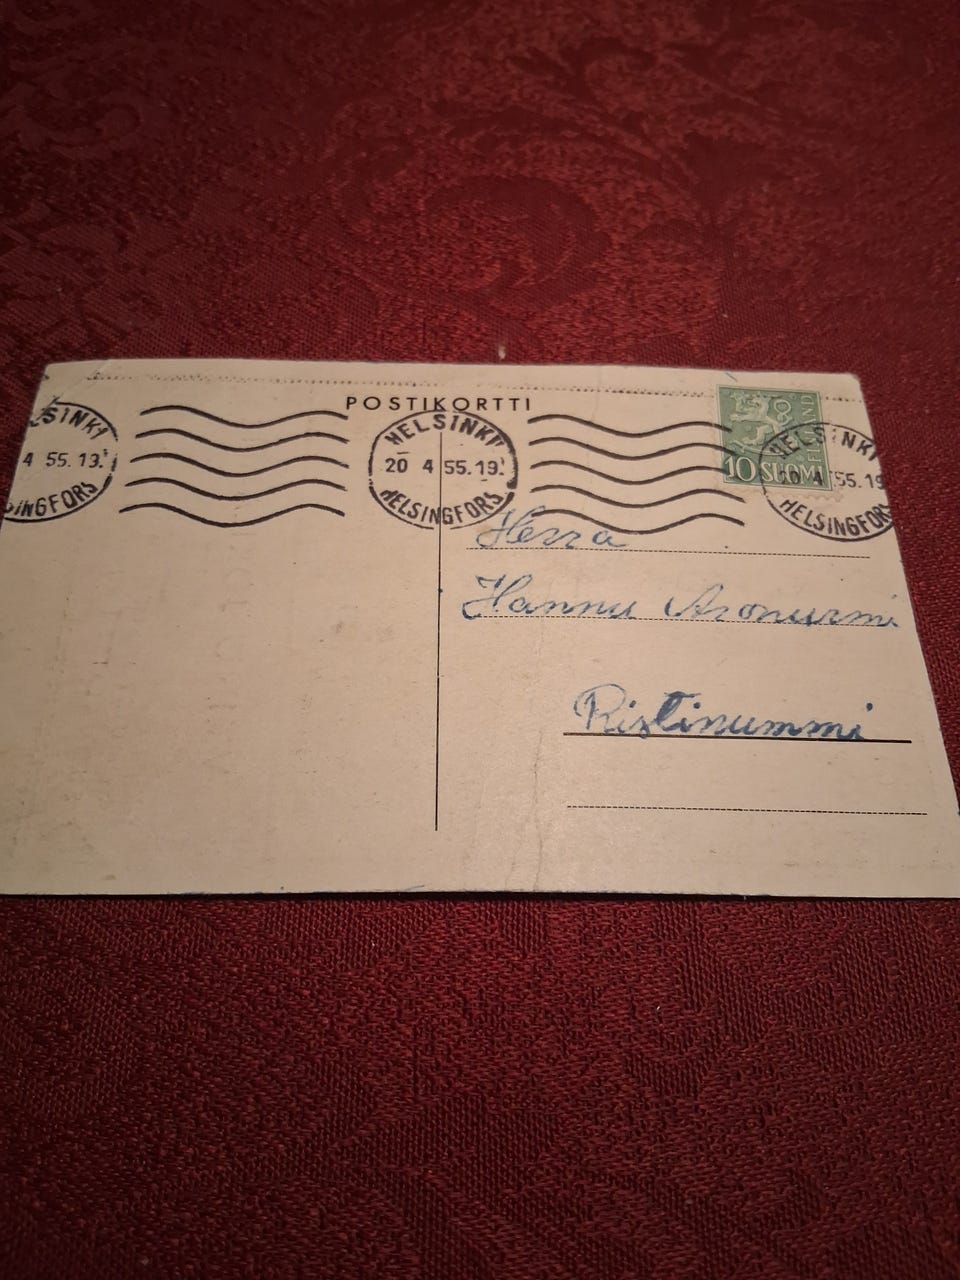 POSTIKORTTI
LSINKI
4 55. 19.
SINGFORS
HELSINKI
20 4 55. 19.
HELSINGFORS
10 SUOMI
FINLAND
HELSINKI
20 4 55. 19
HELSINGFORS
Herra
Hannu Aronurmi
Ristinummi